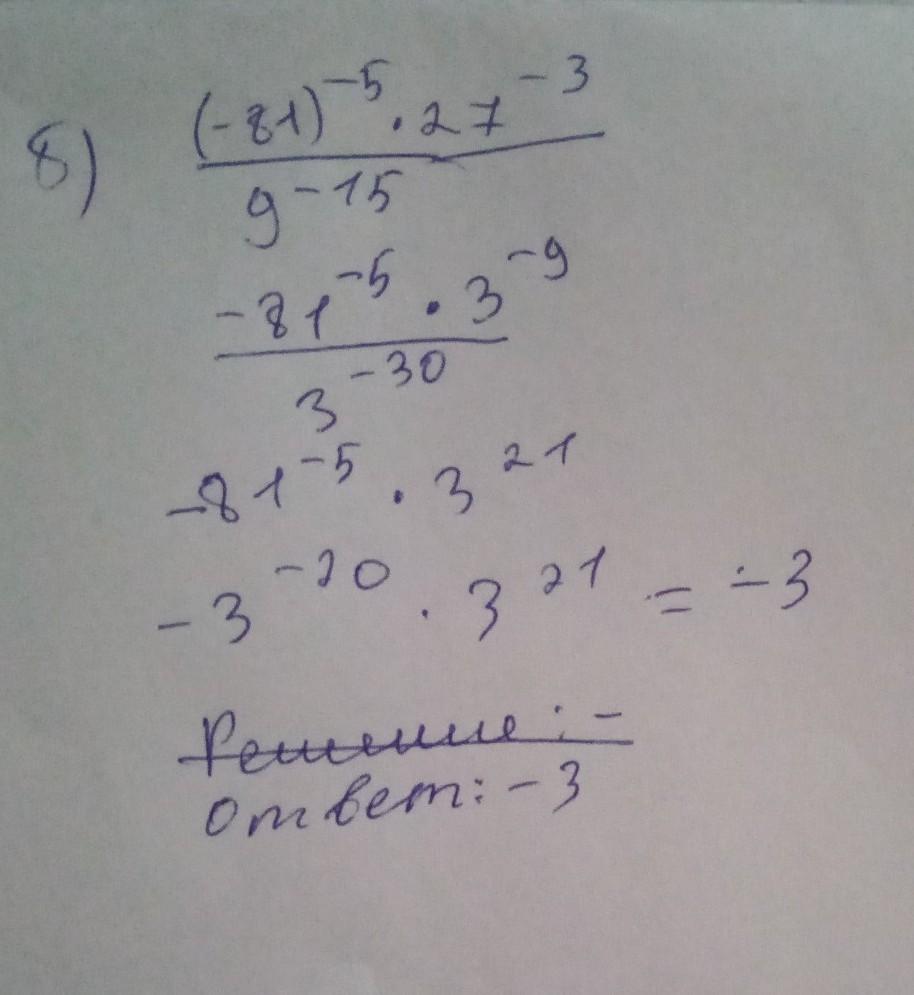 8) (-81)^-5 · 27^-3
9^-15
-81^-5 · 3^-9
3^-30
-81^-5 · 3^21
-3^-20 · 3^21 = -3
Решение: -
Ответ: -3